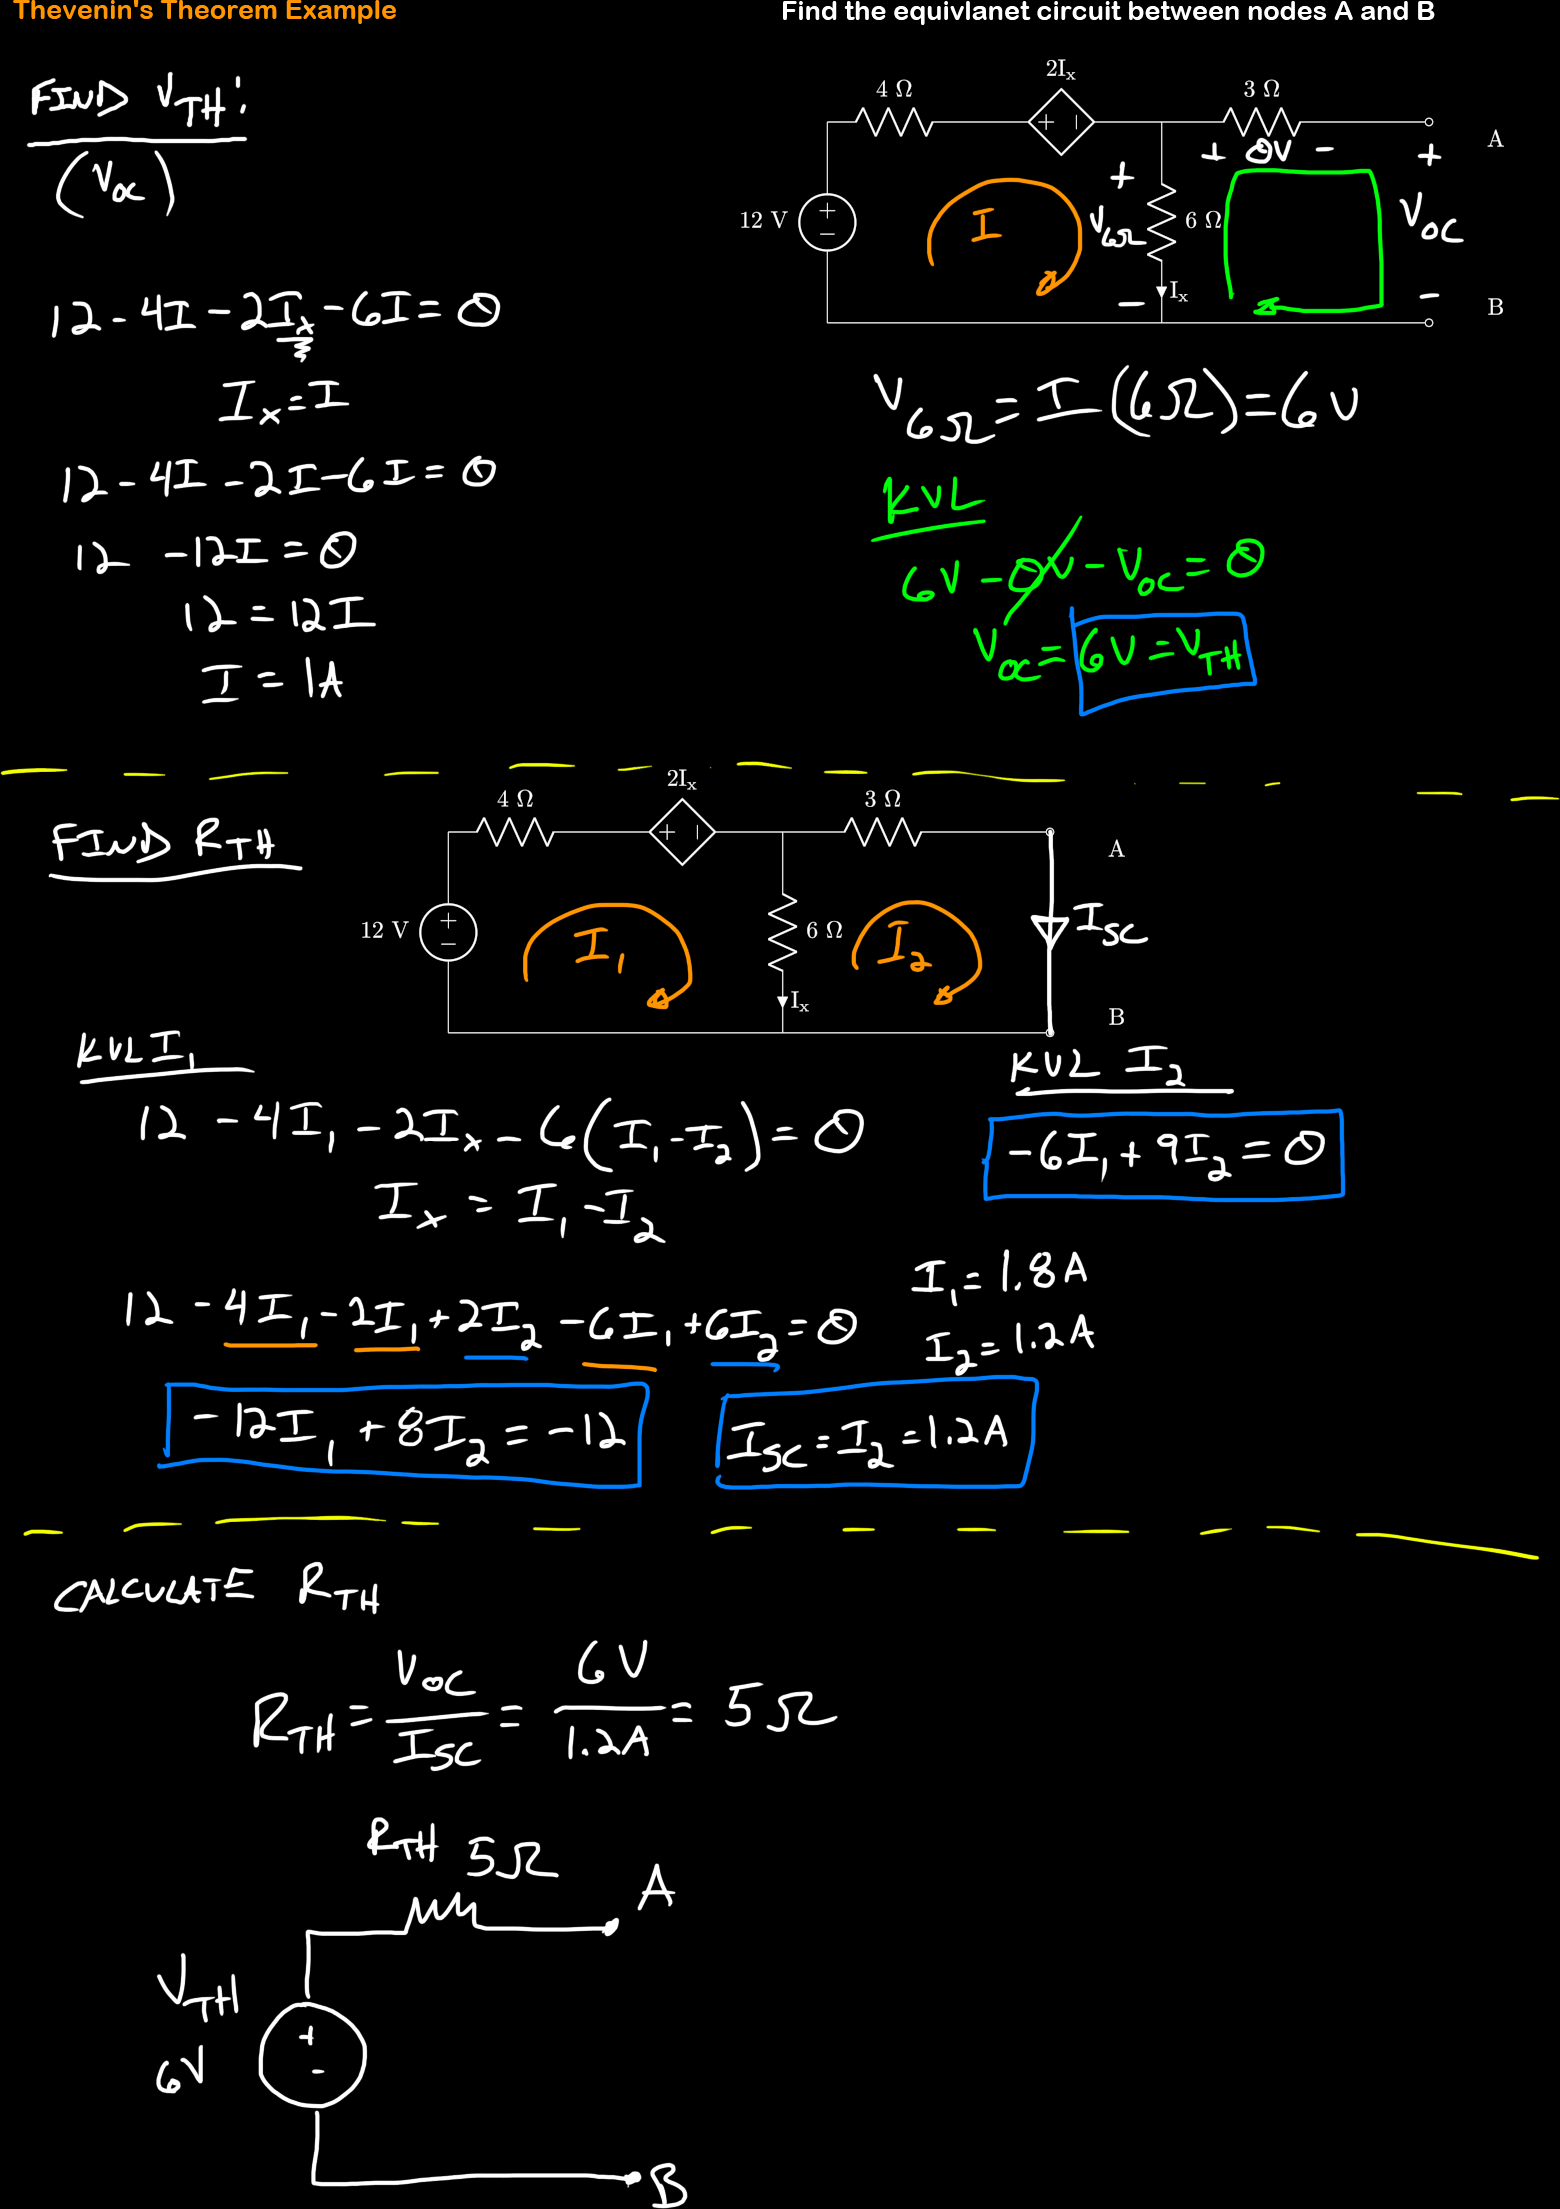 Thevenin's Theorem Example
Find the equivlanet circuit between nodes A and B
FIND V_TH:
(V_OC)
12 - 4I - 2I_x - 6I = 0
I_x = I
12 - 4I - 2I - 6I = 0
12 - 12I = 0
12 = 12I
I = 1A
4 Ω
2I_x
3 Ω
+ -
+ 0V -
A
+
12 V
+
-
I
+
V_6Ω
-
6 Ω
I_x
V_OC
-
B
V_6Ω = I(6Ω) = 6V
KVL
6V - 0V - V_OC = 0
V_OC = 6V = V_TH
FIND R_TH
4 Ω
2I_x
3 Ω
+ -
A
12 V
+
-
I_1
6 Ω
I_2
I_SC
I_x
B
KVL I_1
12 - 4I_1 - 2I_x - 6(I_1 - I_2) = 0
I_x = I_1 - I_2
12 - 4I_1 - 2I_1 + 2I_2 - 6I_1 + 6I_2 = 0
-12I_1 + 8I_2 = -12
KVL I_2
-6I_1 + 9I_2 = 0
I_1 = 1.8A
I_2 = 1.2A
I_SC = I_2 = 1.2A
CALCULATE R_TH
R_TH = V_OC / I_SC = 6V / 1.2A = 5Ω
R_TH 5Ω
A
V_TH
6V
+
-
B